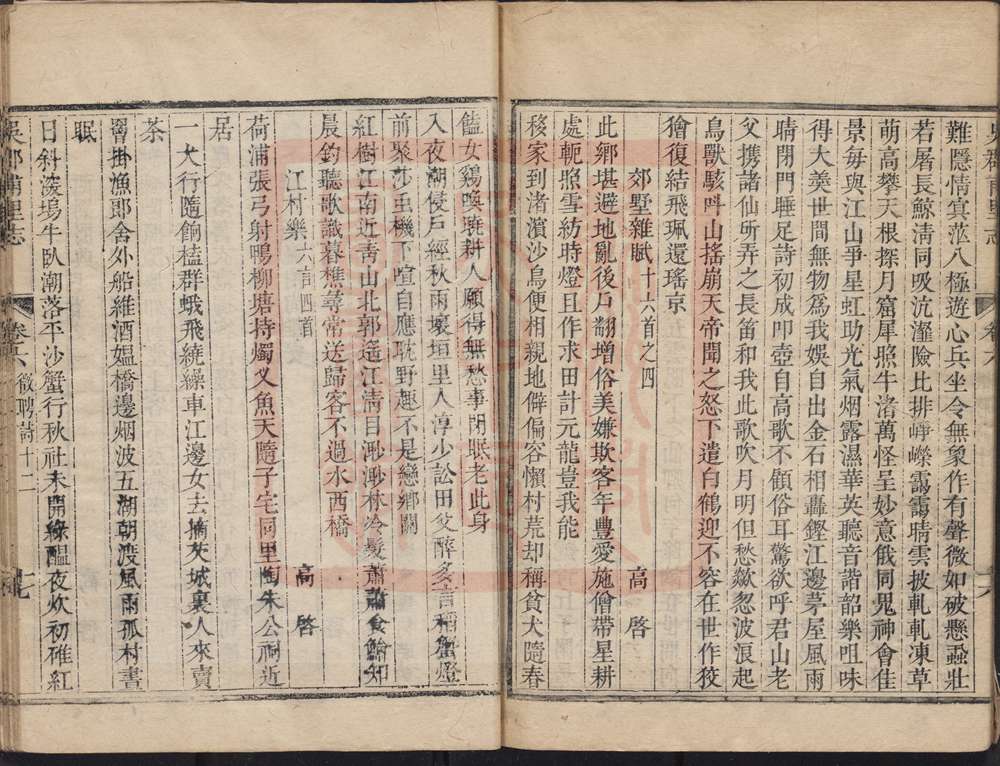 難隱情冥茫八極遊心兵坐令無象作有聲微如破懸蝨壯
若屠長鯨清同吸沆瀣險比排崢嶸靄靄晴雲披軋軋凍草
萌高攀天根探月窟犀照牛渚萬怪呈妙意俄同鬼神會佳
景每與江山爭星虹助光氣烟露濕華英聽音諧韶樂咀味
得大羮世間無物為我娛自出金石相轟鏗江邊茅屋風雨
晴閉門睡足詩初成叩壺自高歌不顧俗耳驚欲呼君山老
父攜諸仙所弄之長笛和我此歌吹月明但愁歘忽波浪起
鳥獸駭呌山搖崩天帝聞之怒下遣白鶴迎不容在世作狡
獪復結飛珮還瑤京
郊墅雜賦十六首之四
高啓
此鄉堪避地亂後戶翻增俗美嫌欺客年豐愛施僧帶星耕
處軛照雪紡時燈且作求田計元龍豈我能
移家到渚濱沙鳥便相親地僻偏容懶村荒却稱貧犬隨春
饁女鷄喚曉耕人願得無愁事閉眠老此身
入夜潮侵戶經秋雨壞垣里人淳少訟田叟醉多言稻蟹燈
前聚莎虫機下喧自應耽野趣不是戀鄉關
紅樹江南近青山北郭遥江清目渺渺林冷髮蕭蕭食鮮知
晨釣聽歌識暮樵尋常送歸客不過水西橋
江村樂六言四首
高啓
荷浦張弓射鴨柳塘持燭叉魚天隨子宅同里陶朱公祠近
居
一犬行隨餉榼群蛾飛繞繰車江邊女去摘茨城裏人來賣
茶
罾掛漁郎舍外船維酒媼橋邊烟波五湖朝渡風雨孤村晝
眠
日斜深塢牛臥潮落平沙蟹行秋社未開綠醖夜炊初碓紅
吳郡甫里志
卷六
徵聘詩十二